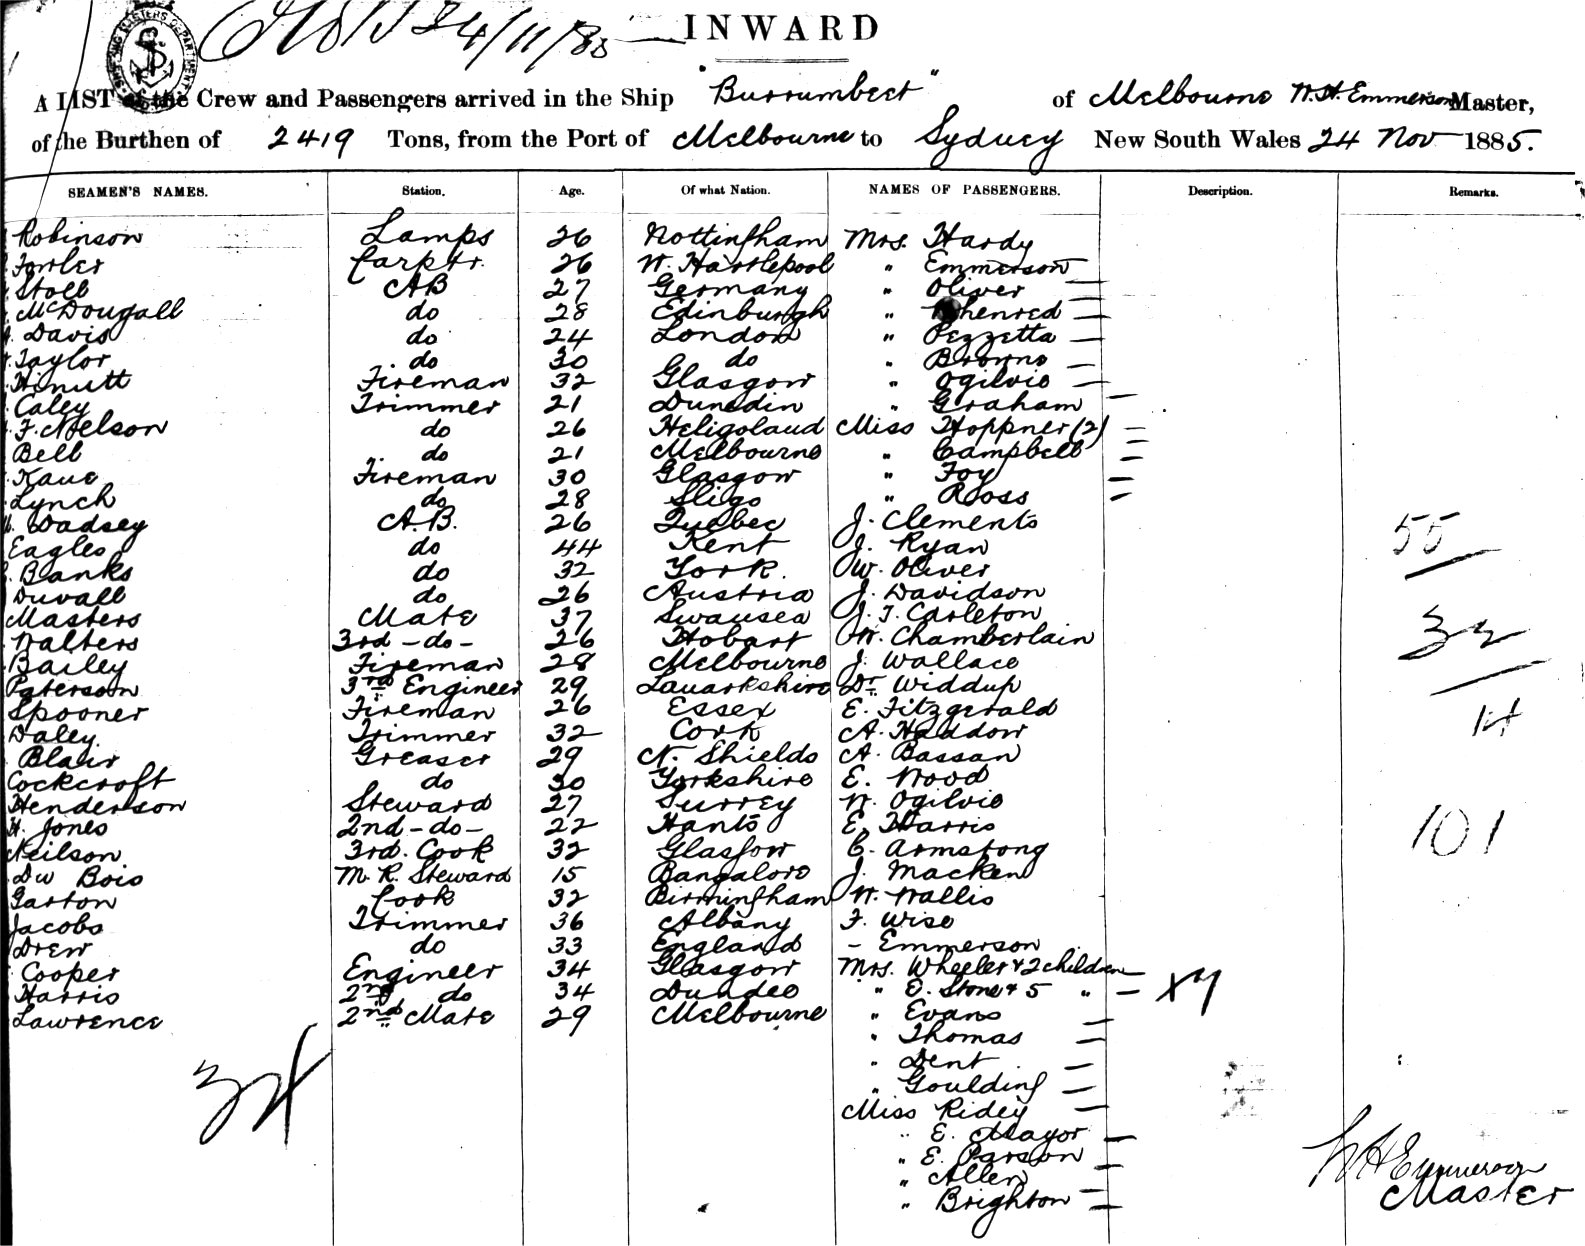 24/11/85
INWARD
A LIST of the Crew and Passengers arrived in the Ship "Burrumbeet" of Melbourne W. H. Emmerson Master,
of the Burthen of 2419 Tons, from the Port of Melbourne to Sydney New South Wales 24 Nov 1885.
SEAMEN'S NAMES. Station. Age. Of what Nation. NAMES OF PASSENGERS. Description. Remarks.
Robinson Lamps 26 Nottingham Mrs. Hardy
Fowler Carptr. 26 W. Hartlepool " Emmerson
Stoll AB 27 Germany " Oliver
McDougall do 28 Edinburgh "
Davis do 24 London " Pezzetta
Taylor do 30 do " Browne
Fireman 32 Glasgow " Ogilvie
Caley Trimmer 21 Dunedin " Graham
F. Nielson do 26 Heligoland Miss Hoppner (2)
Bell do 21 Melbourne " Campbell
Kane Fireman 30 Glasgow " Foy
Lynch do 28 Sligo " Ross
Dadsey A.B. 26 Quebec J. Clements 55
Eagles do 44 Kent J. Ryan
Banks do 32 York. W. Oliver
Duvall do 26 Austria J. Davidson
Masters Mate 37 Swansea J. T. Carleton
Walters 3rd -do- 26 Hobart W. Chamberlain
Bailey Fireman 28 Melbourne J. Wallace
Paterson 3rd Engineer 29 Lanarkshire Dr. Widdup
Spooner Fireman 26 Essex E. Fitzgerald
Daley Trimmer 32 Cork A. Haddow
Blair Greaser 29 N. Shields A. Bassan
Cockcroft do 30 Yorkshire E. Wood
Henderson Steward 27 Surrey W. Ogilvie
H. Jones 2nd -do- 22 Hants E. Harris 101
Neilson 3rd. Cook 32 Glasgow C. Armstong
Du Bois M. R. Steward 15 Bangalore J. Macken
Garton Cook 32 Birmingham W. Wallis
Jacobs Trimmer 36 Albany F. Wise
Drew do 33 England - Emmerson
Cooper Engineer 34 Glasgow Mrs. Wheeler & 2 children
Harris 2nd do 34 Dundee " E. Stone & 5 " x7
Lawrence 2nd Mate 29 Melbourne " Evans
" Thomas
34 " Dent
" Goulding
Miss Ridey
" E. Mayor
" E. Parson
" Allen
" Brighton
W H Emmerson
Master